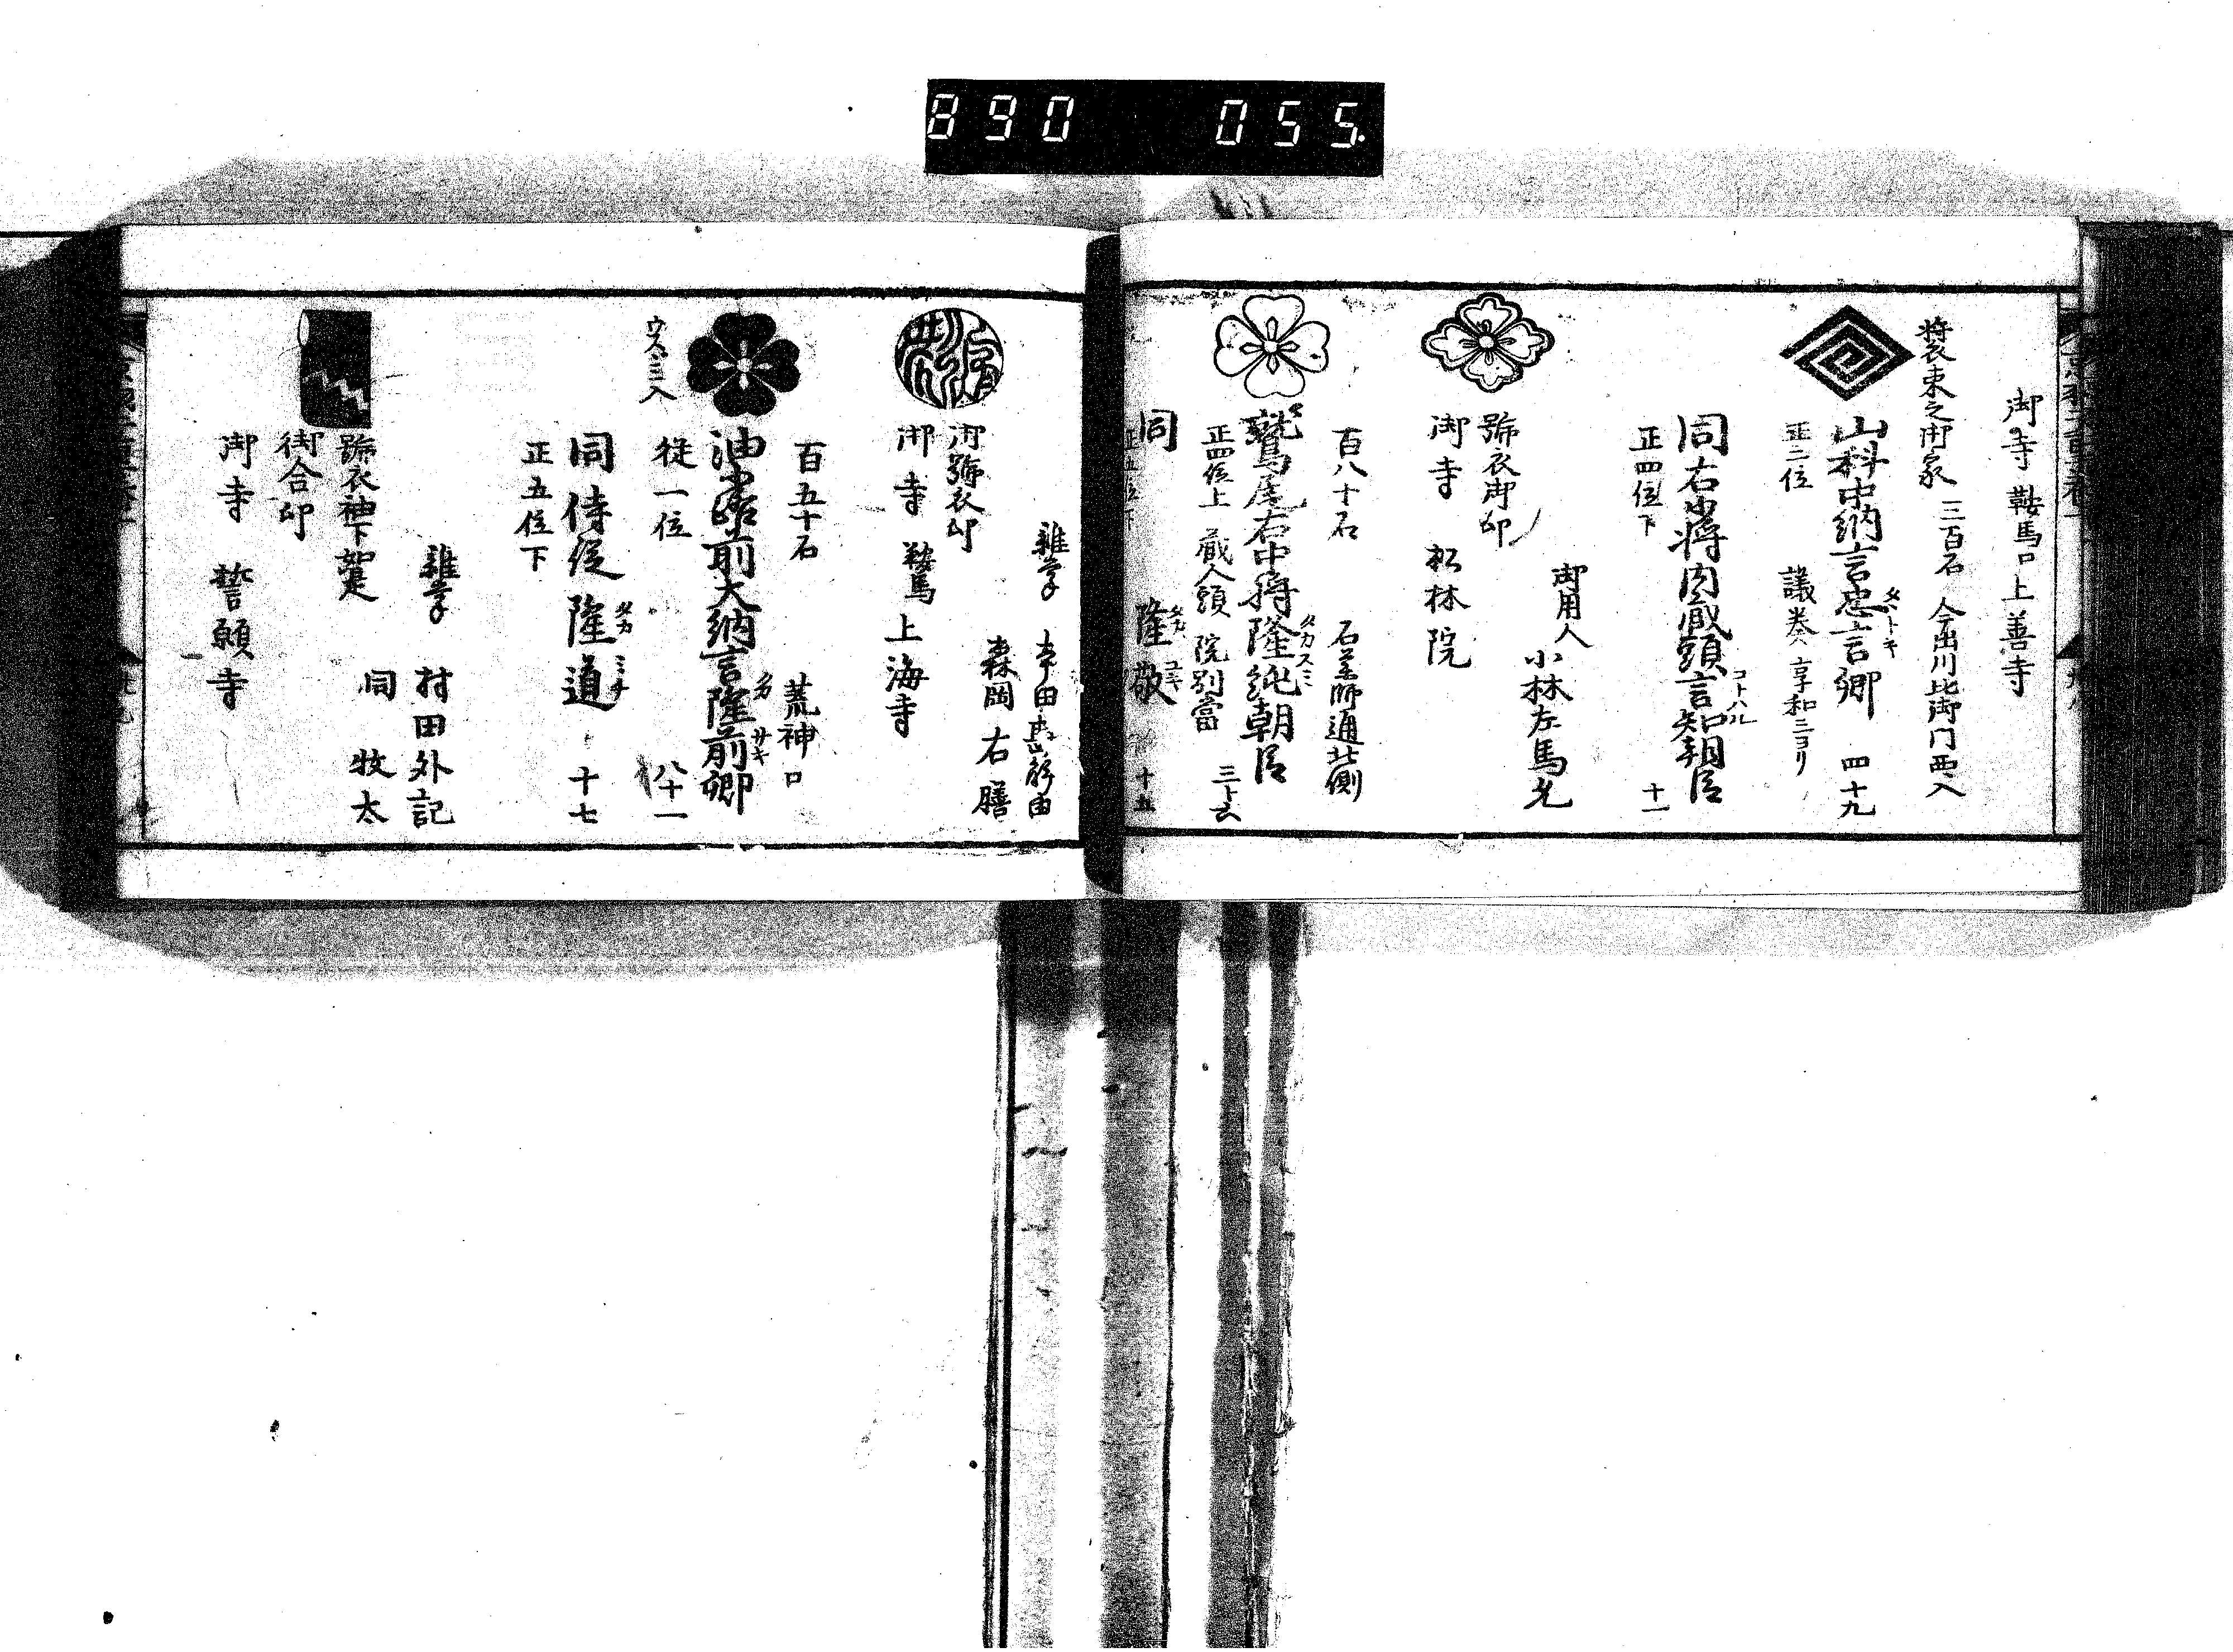 890 055.
御寺 鞍馬口 上善寺
将衣束之御家 三百石 今出川北御門西入
山科中納言忠言卿 四十九
正二位 議奏 享和二ヨリ
同右少将内蔵頭言知朝臣
コトハル
正四位下 十一
御用人 小林左馬允
号衣御印
御寺 松林院
百八十石 石薬師通北側
鷲尾右中将隆純朝臣
タカスミ
正四位上 蔵人頭 院別當
同 隆敬
正五位下 十五
雑掌
森岡右膳
御号衣印
御寺 鞍馬 上海寺
百五十石 荒神口
油小路前大納言隆前卿
タカ サキ
従一位 八十一
同侍従隆道 十七
タカ ミチ
正五位下
雑掌 村田外記
同 牧太
号衣袖下
御合印
御寺 誓願寺